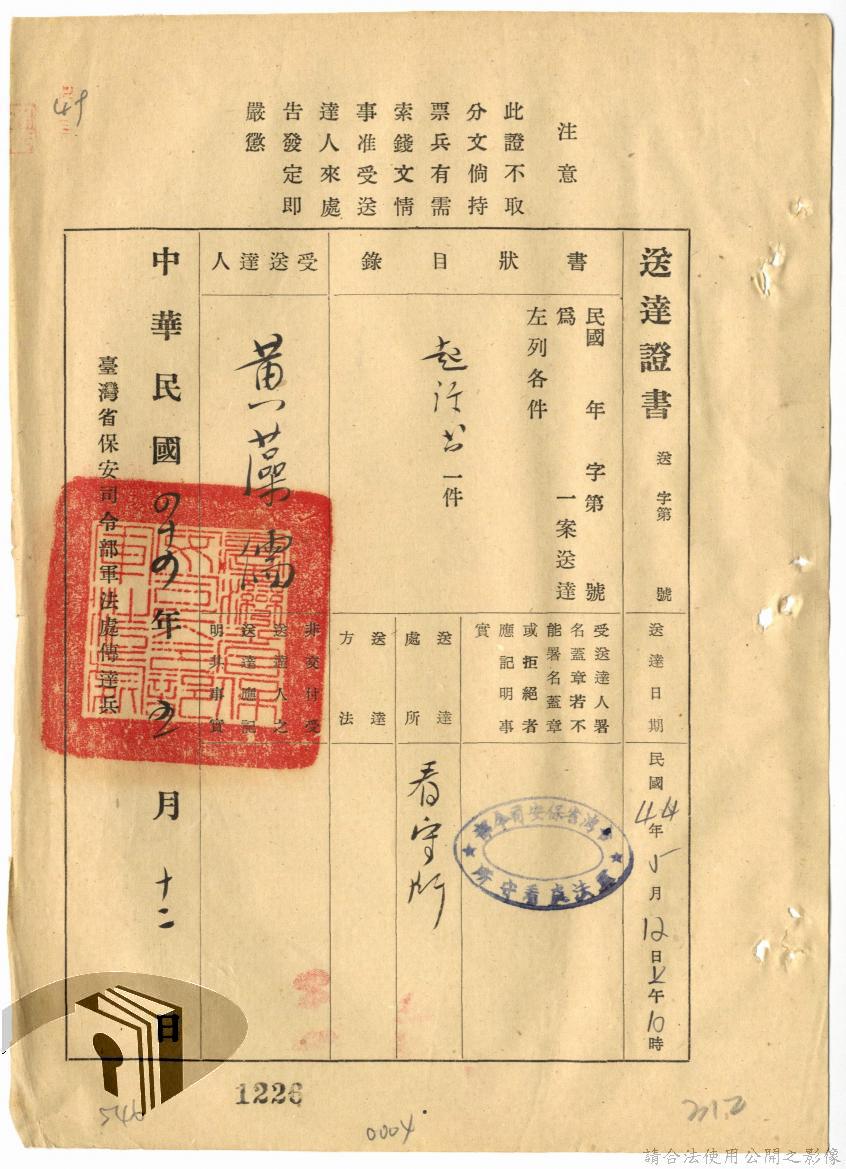 注意
此證不取
分文倘持
票兵有需
索錢文情
事准受送
達人來處
告發定即
嚴懲
49
送達證書
送 字第 號
送達日期
民國44年5月12日上午10時
書狀目錄
民國 年 字第 號
為 一案送達
左列各件
起訴書一件
受送達人署
名蓋章若不
能署名蓋章
或拒絕者
應記明事
實
臺灣省保安司令部
軍法處看守所
送達
處所
看守所
送達
方法
受送達人
黃藻儒
非交付受
送達人之
送達應記
明其事實
中華民國四十四年五月十二日
臺灣省保安司令部軍法處傳達兵
1226
546
0004
請合法使用公開之影像